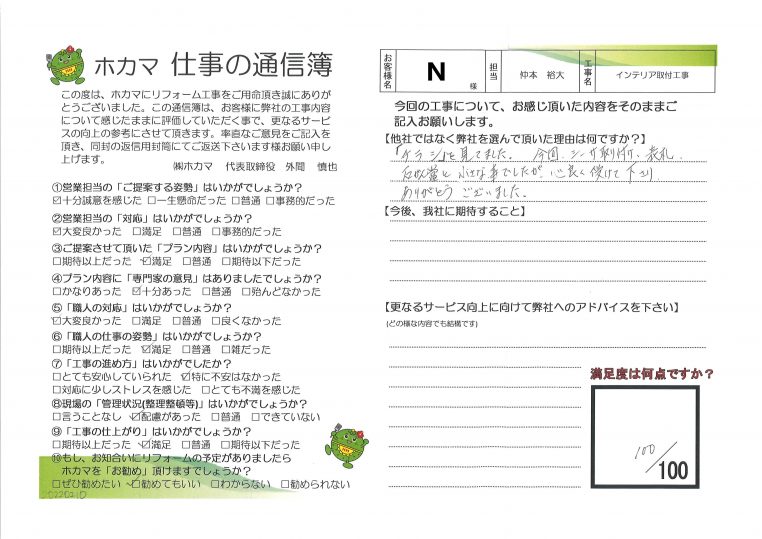 ホカマ 仕事の通信簿
この度は、ホカマにリフォーム工事をご用命頂き誠にありが
とうございました。この通信簿は、お客様に弊社の工事内容
について感じたままに評価していただく事で、更なるサービ
スの向上の参考にさせて頂きます。率直なご意見をご記入を
頂き、同封の返信用封筒にてご返送下さいます様お願い申し
上げます。
㈱ホカマ 代表取締役 外間 慎也
①営業担当の「ご提案する姿勢」はいかがでしょうか？
☑十分誠意を感じた □一生懸命だった □普通 □事務的だった
②営業担当の「対応」はいかがでしょうか？
☑大変良かった □満足 □普通 □事務的だった
③ご提案させて頂いた「プラン内容」はいかがでしょうか？
□期待以上だった ☑満足 □普通 □期待以下だった
④プラン内容に「専門家の意見」はありましたでしょうか？
□かなりあった ☑十分あった □普通 □殆んどなかった
⑤「職人の対応」はいかがでしょうか？
☑大変良かった □満足 □普通 □良くなかった
⑥「職人の仕事の姿勢」はいかがでしょうか？
□期待以上だった ☑満足 □普通 □雑だった
⑦「工事の進め方」はいかがでしたか？
□とても安心していられた ☑特に不安はなかった
□対応に少しストレスを感じた □とても不満を感じた
⑧現場の「管理状況(整理整頓等)」はいかがでしょうか？
□言うことなし ☑配慮があった □普通 □できていない
⑨「工事の仕上がり」はいかがでしょうか？
□期待以上だった ☑満足 □普通 □期待以下だった
⑩もし、お知合いにリフォームの予定がありましたら
ホカマを「お勧め」頂けますでしょうか？
□ぜひ勧めたい ☑勧めてもいい □わからない □勧められない
お客様名 N 様 担当 仲本 裕大 工事名 インテリア取付工事
今回の工事について、お感じ頂いた内容をそのままご
記入お願いします。
【他社ではなく弊社を選んで頂いた理由は何ですか？】
「チラシ」を見てました。 今回、シーサー取り付け、表札、
と 小さな事でしたが 心良く受けて下さり
ありがとう ございました。
【今後、我社に期待すること】
【更なるサービス向上に向けて弊社へのアドバイスを下さい】
(どの様な内容でも結構です)
満足度は何点ですか？
100/100